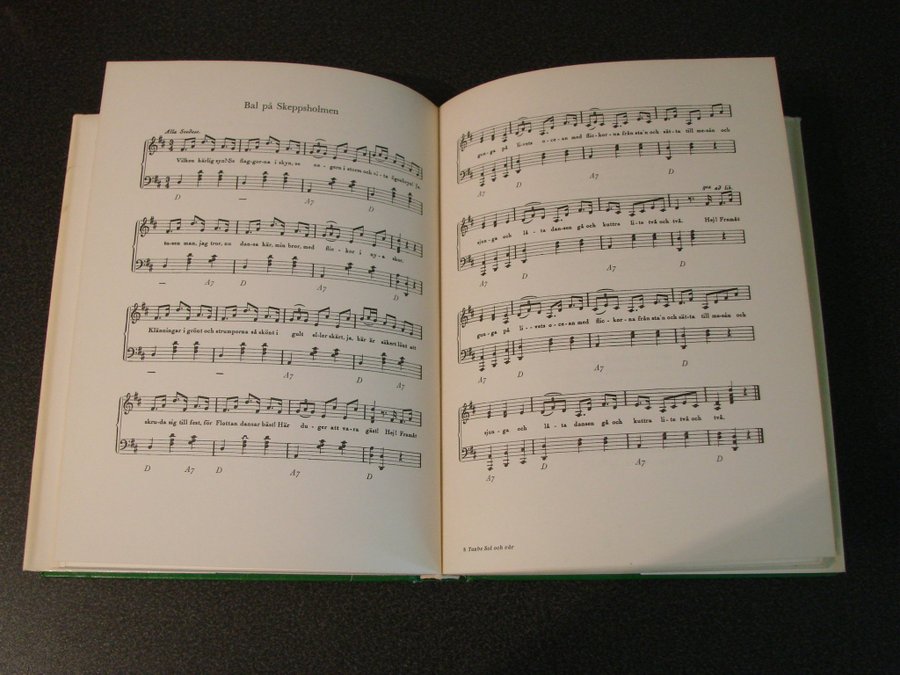 Bal på Skeppsholmen
Alla Svedese.
Vilken härlig syn? Se flag-gor-na i skyn, se
i storm och
D — A7 D
man, jag tror, nu dan-sa här, min bror, med flic-kor i ny-a skor.
— A7 D A7 D
Klänningar i grönt och strumporna så skönt i gult el-ler skärt, ja, här är säkert lönt att
— — A7 D A7
skru-da sig till fest, för Flottan dansar bäst! Här du-ger att va-ra gäst! Hej! Framåt
D A7 D A7 D
gun-ga på li-vets o-ce-an med flic-kor-na från sta'n och sät-ta till me-sàn och
A7 D A7 D
8va ad lib.
sjun-ga och lå-ta dan-sen gå och kuttra li-te två och två. Hej! Framåt
A7 D A7 D
gun-ga på li-vets o-ce-an med flic-kor-na från sta'n och sät-ta till me-sàn och
A7 D A7 D
sjun-ga och lå-ta dansen gå och kuttra li-te två och två.
A7 D A7 D
Taube Sol och vår